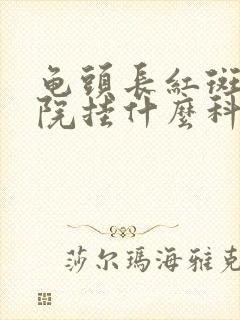 龟頭長紅斑
院挂什麼科
莎尔瑪海雅克